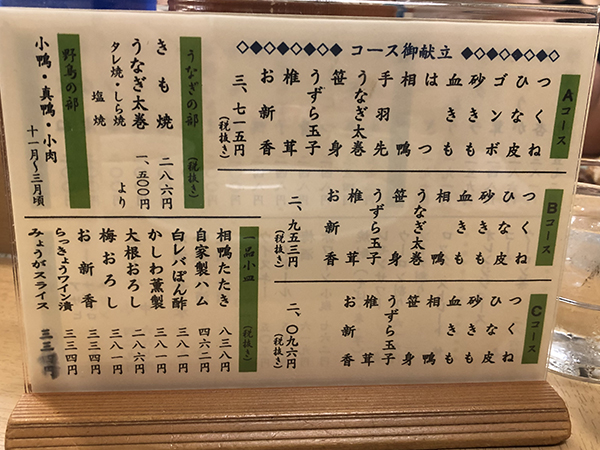 コース御献立
Aコース
つくね
ひな皮
ゴンボ
砂きも
血きも
はつ
相鴨
手羽先
うなぎ太巻
笹身
うずら玉子
椎茸
お新香
三、七一五円
(税抜き)
Bコース
つくね
ひな皮
砂きも
血きも
相鴨
うなぎ太巻
笹身
うずら玉子
椎茸
お新香
二、九五三円
(税抜き)
Cコース
つくね
ひな皮
砂きも
血きも
相鴨
笹身
うずら玉子
椎茸
お新香
二、〇九六円
(税抜き)
うなぎの部 (税抜き)
きも焼 二八六円
うなぎ太巻 一、五〇〇円
タレ焼・しら焼 より
塩焼
野鳥の部
小鴨・真鴨・小肉
十一月〜三月頃
一品小皿 (税抜き)
相鴨たたき 八三八円
自家製ハム 四六二円
白レバぽん酢 三八一円
かしわ薫製 三八一円
大根おろし 二八六円
梅おろし 三八一円
お新香 三三四円
らっきょうワイン漬 三三四円
みょうがスライス 三三円